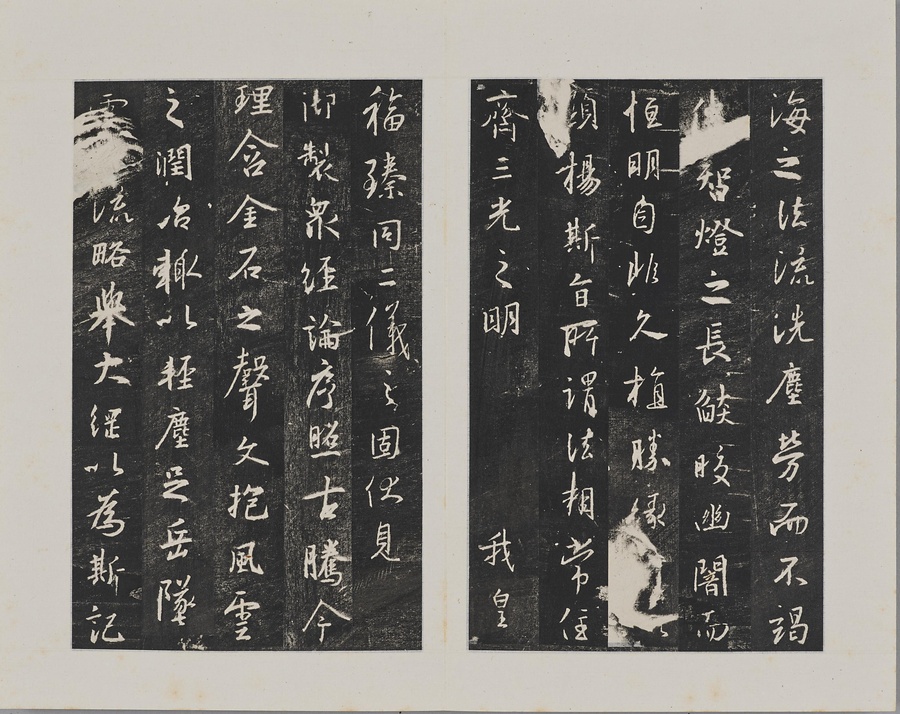 海之法流洗塵勞而不竭
智燈之長焰皎幽闇而
恒明自非久植勝緣
顯揚斯旨所謂法相常住
齊三光之明　我皇
福臻同二儀之固伏見
御製眾經論序照古騰今
理含金石之聲文抱風雲
之潤治輒以輕塵足岳墜
露　流略舉大綱以為斯記